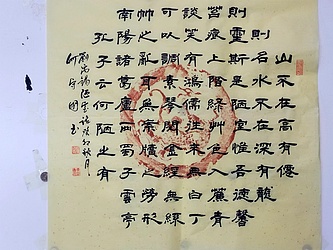 山不在高有僊
則名水不在深有龍
則靈斯是陋室惟吾德馨
苔痕上階綠草色入簾青
談笑有鴻儒往來無白丁
可以調素琴閱金經無絲
竹之亂耳無案牘之勞形
南陽諸葛廬西蜀子雲亭
孔子云何陋之有
劉禹錫陋室銘癸卯秋月
書